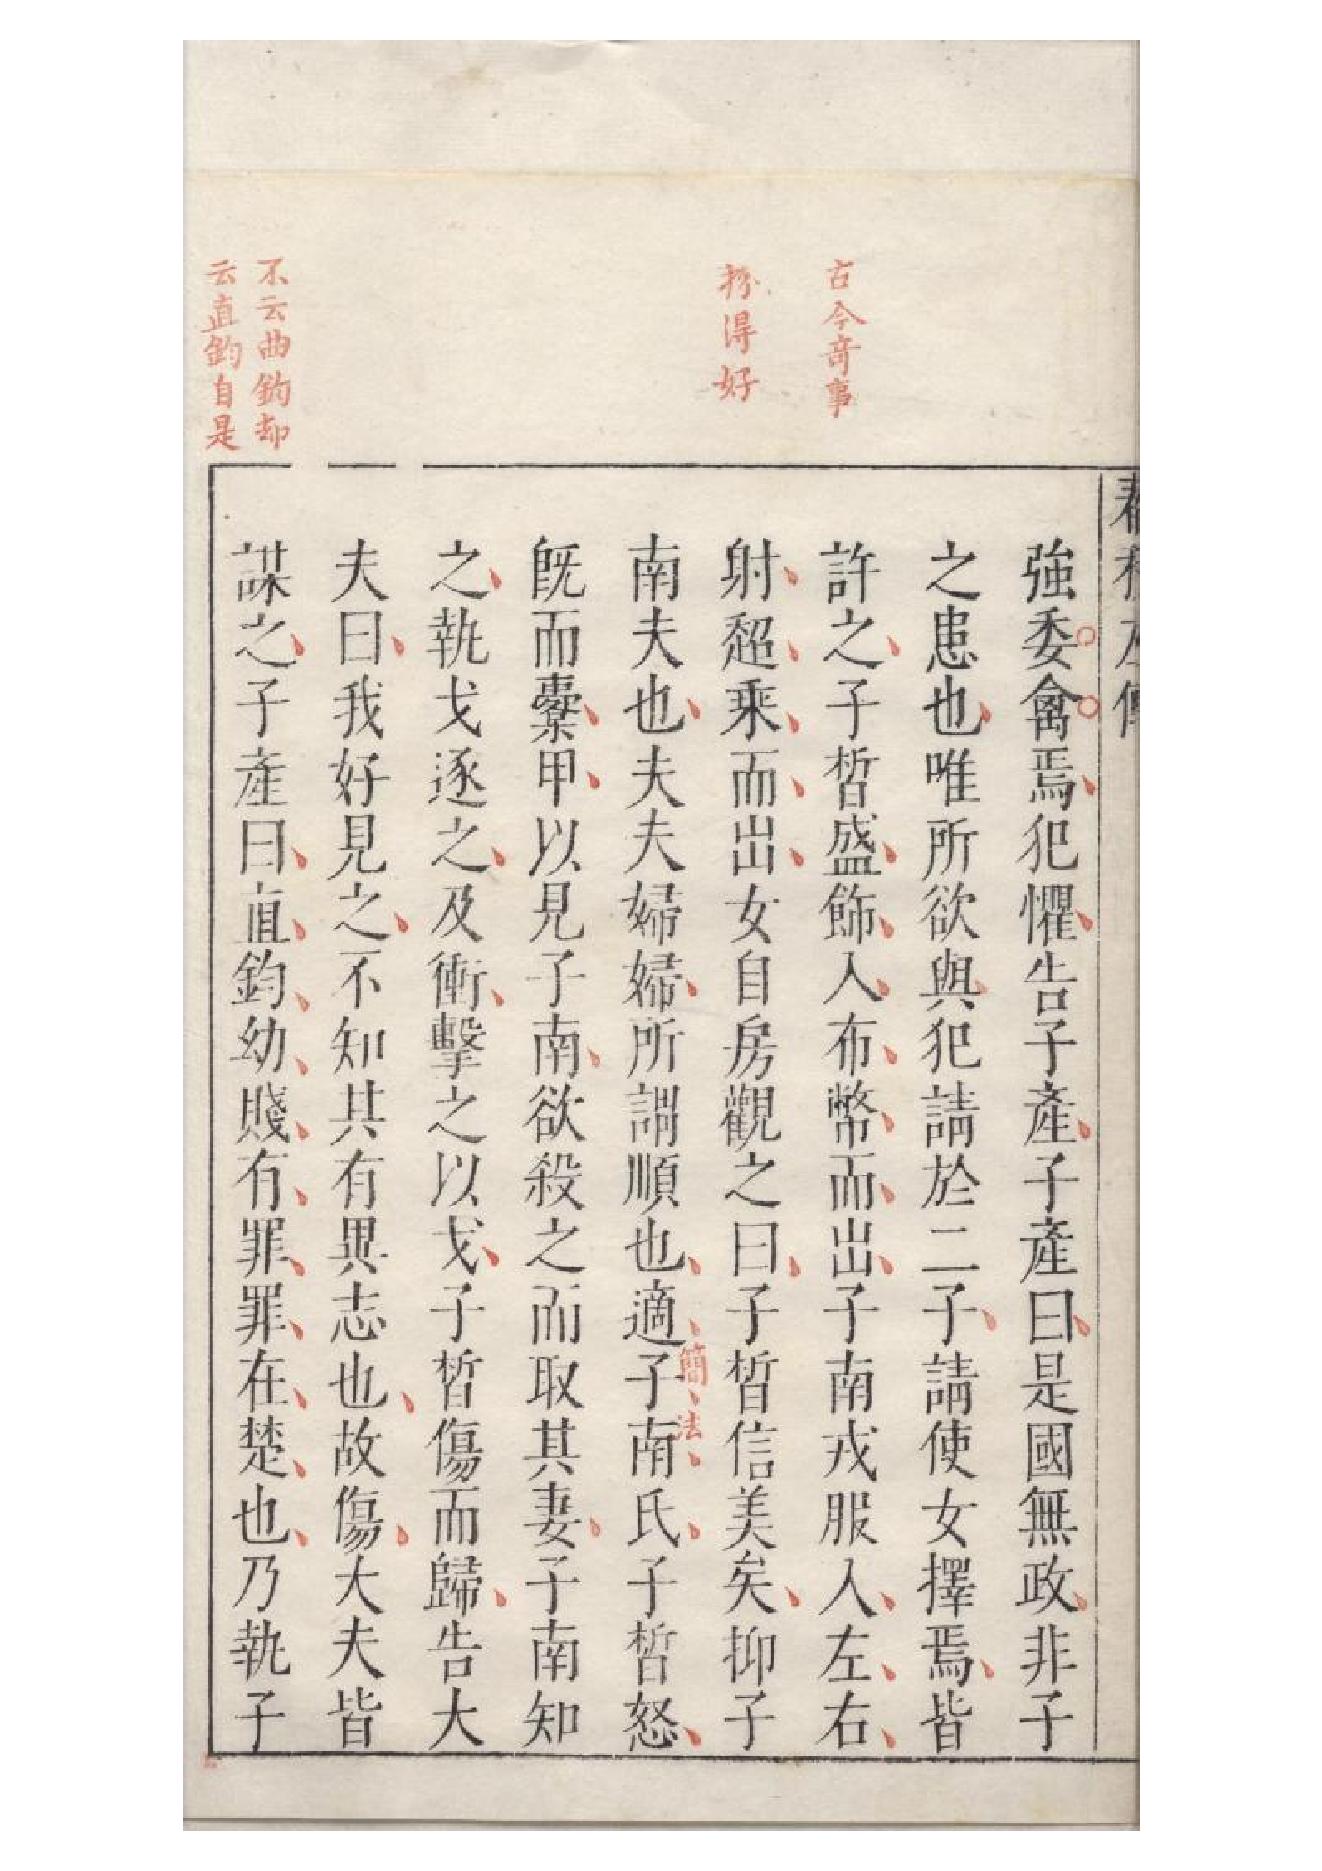 春秋左傳
強委禽焉犯懼告子產子產曰是國無政非子
之患也唯所欲與犯請於二子請使女擇焉皆
許之子晳盛飾入布幣而出子南戎服入左右
射超乘而出女自房觀之曰子晳信美矣抑子
南夫也夫夫婦婦所謂順也適子南氏子晳怒
旣而櫜甲以見子南欲殺之而取其妻子南知
之執戈逐之及衝擊之以戈子晳傷而歸告大
夫曰我好見之不知其有異志也故傷大夫皆
謀之子產曰直鈞幼賤有罪罪在楚也乃執子
古今奇事
得好
簡法
不云曲鈞却
云直鈞自是